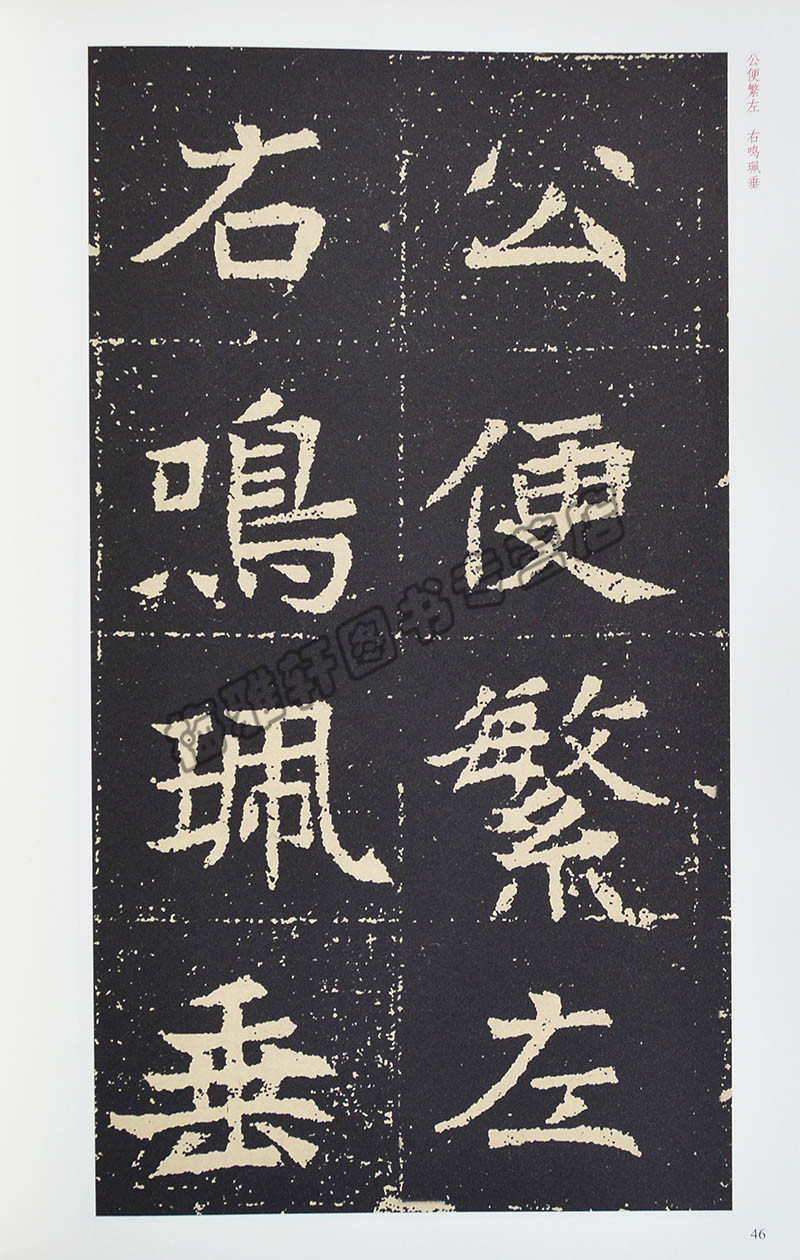 公便繁左 右鸣珮垂
公便繁左
右鳴珮垂
雅轩图书专营店
46